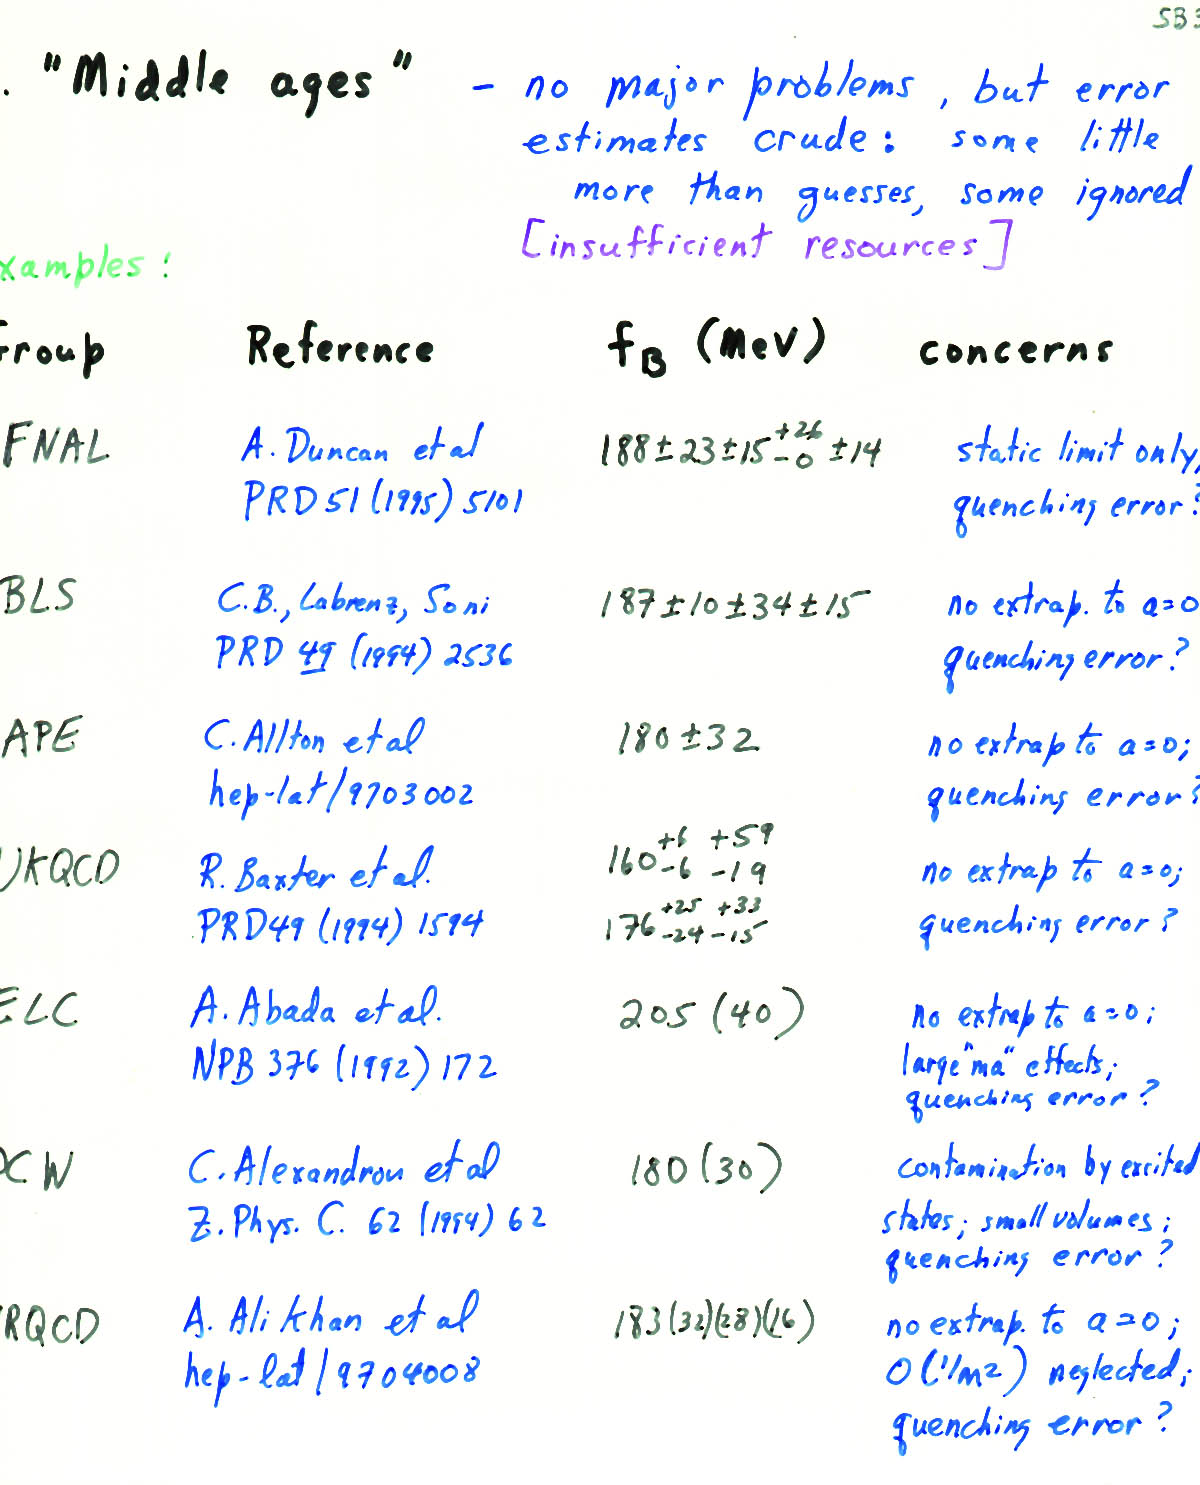 SB3
. "Middle ages" - no major problems, but error
estimates crude: some little
more than guesses, some ignored
[insufficient resources]
xamples:
Group Reference f_B (MeV) concerns
FNAL A. Duncan et al 188 ± 23 ± 15 +26 -0 ± 14 static limit only,
PRD 51 (1995) 5101 quenching error?
BLS C.B., Labrenz, Soni 187 ± 10 ± 34 ± 15 no extrap. to a=0
PRD 49 (1994) 2536 quenching error?
APE C. Allton et al 180 ± 32 no extrap to a=0;
hep-lat/9703002 quenching error?
UKQCD R. Baxter et al. 160 +6 -6 +59 -19 no extrap to a=0;
PRD49 (1994) 1594 176 +25 -24 +33 -15 quenching error?
ELC A. Abada et al. 205 (40) no extrap to a=0;
NPB 376 (1992) 172 large "ma" effects;
quenching error?
CW C. Alexandrou et al 180 (30) contamination by excited
Z. Phys. C. 62 (1994) 62 states; small volumes;
quenching error?
RQCD A. Ali Khan et al 183 (32)(28)(16) no extrap. to a=0;
hep-lat/9704008 O(1/m2) neglected;
quenching error?